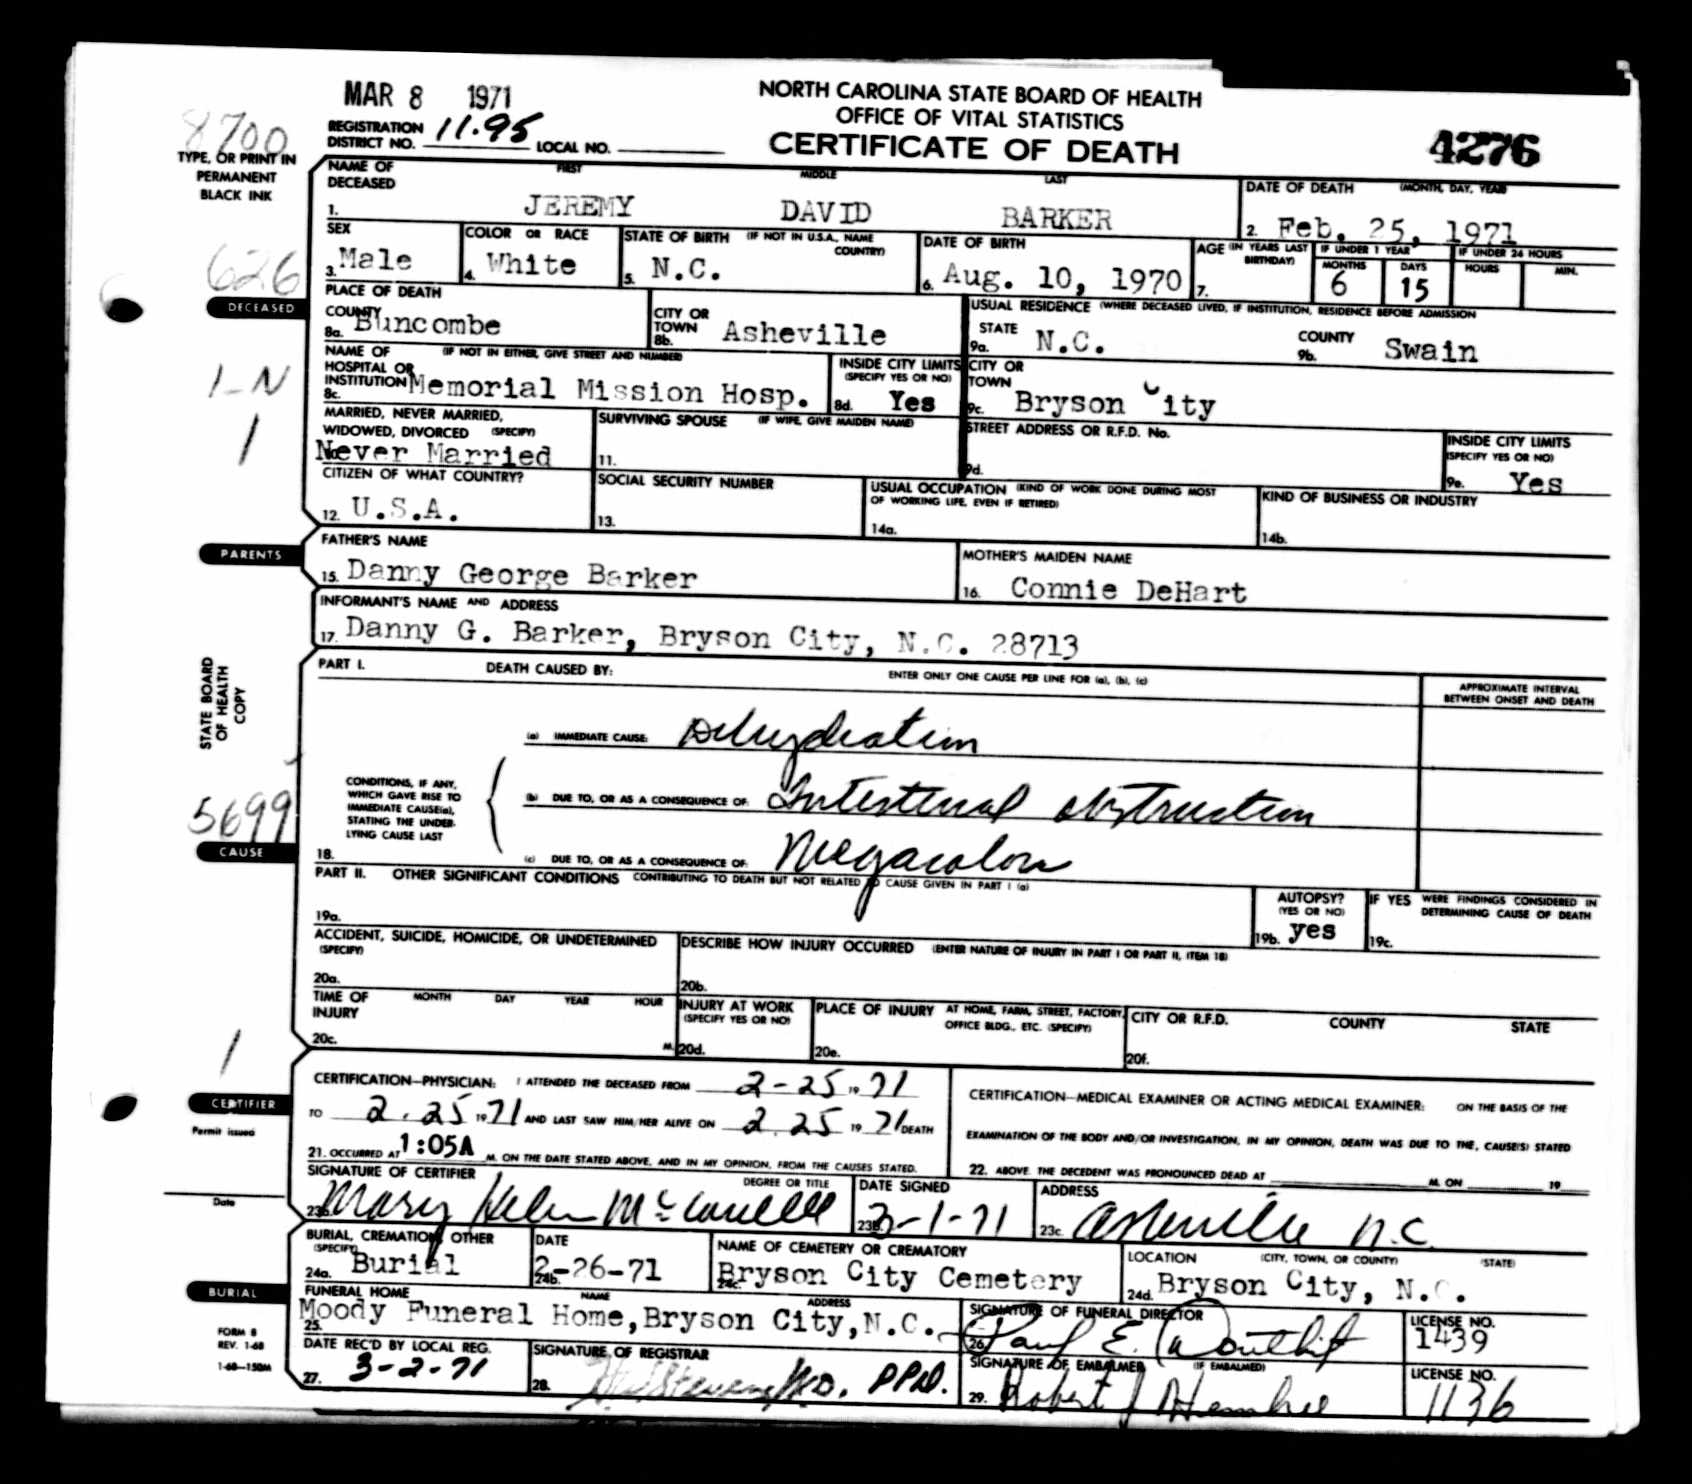 MAR 8 1971
NORTH CAROLINA STATE BOARD OF HEALTH
OFFICE OF VITAL STATISTICS
CERTIFICATE OF DEATH
4276
8700
REGISTRATION DISTRICT NO. 11.95 LOCAL NO.
TYPE, OR PRINT IN
PERMANENT
BLACK INK
NAME OF DECEASED FIRST MIDDLE LAST
1. JEREMY DAVID BARKER
DATE OF DEATH (MONTH, DAY, YEAR)
2. Feb. 25, 1971
SEX
3. Male
COLOR OR RACE
4. White
STATE OF BIRTH (IF NOT IN U.S.A., NAME COUNTRY)
5. N.C.
DATE OF BIRTH
6. Aug. 10, 1970
AGE (IN YEARS LAST BIRTHDAY)
7.
IF UNDER 1 YEAR
MONTHS DAYS
6 15
IF UNDER 24 HOURS
HOURS MIN.
626
DECEASED
PLACE OF DEATH
COUNTY
8a. Buncombe
CITY OR TOWN
8b. Asheville
USUAL RESIDENCE (WHERE DECEASED LIVED, IF INSTITUTION, RESIDENCE BEFORE ADMISSION
STATE
9a. N.C.
COUNTY
9b. Swain
NAME OF HOSPITAL OR INSTITUTION (IF NOT IN EITHER, GIVE STREET AND NUMBER)
8c. Memorial Mission Hosp.
INSIDE CITY LIMITS (SPECIFY YES OR NO)
8d. Yes
CITY OR TOWN
9c. Bryson City
1-N
1
MARRIED, NEVER MARRIED, WIDOWED, DIVORCED (SPECIFY)
Never Married
SURVIVING SPOUSE (IF WIFE, GIVE MAIDEN NAME)
11.
STREET ADDRESS OR R.F.D. No.
9d.
INSIDE CITY LIMITS (SPECIFY YES OR NO)
9e. Yes
CITIZEN OF WHAT COUNTRY?
12. U.S.A.
SOCIAL SECURITY NUMBER
13.
USUAL OCCUPATION (KIND OF WORK DONE DURING MOST OF WORKING LIFE, EVEN IF RETIRED)
14a.
KIND OF BUSINESS OR INDUSTRY
14b.
PARENTS
FATHER'S NAME
15. Danny George Barker
MOTHER'S MAIDEN NAME
16. Connie DeHart
INFORMANT'S NAME AND ADDRESS
17. Danny G. Barker, Bryson City, N.C. 28713
STATE BOARD
OF HEALTH
COPY
PART I. DEATH CAUSED BY: ENTER ONLY ONE CAUSE PER LINE FOR (a), (b), (c)
APPROXIMATE INTERVAL
BETWEEN ONSET AND DEATH
(a) IMMEDIATE CAUSE: Dehydration
CONDITIONS, IF ANY,
WHICH GAVE RISE TO
IMMEDIATE CAUSE(a),
STATING THE UNDER-
LYING CAUSE LAST
(b) DUE TO, OR AS A CONSEQUENCE OF: Intestinal obstruction
5699
CAUSE
18. (c) DUE TO, OR AS A CONSEQUENCE OF: Megacolon
PART II. OTHER SIGNIFICANT CONDITIONS CONTRIBUTING TO DEATH BUT NOT RELATED TO CAUSE GIVEN IN PART I (a)
19a.
AUTOPSY? (YES OR NO)
19b. yes
IF YES WERE FINDINGS CONSIDERED IN DETERMINING CAUSE OF DEATH
19c.
ACCIDENT, SUICIDE, HOMICIDE, OR UNDETERMINED (SPECIFY)
20a.
DESCRIBE HOW INJURY OCCURRED (ENTER NATURE OF INJURY IN PART I OR PART II, ITEM 18)
20b.
TIME OF INJURY MONTH DAY YEAR HOUR
20c. M.
INJURY AT WORK (SPECIFY YES OR NO)
20d.
PLACE OF INJURY AT HOME, FARM, STREET, FACTORY, OFFICE BLDG., ETC. (SPECIFY)
20e.
CITY OR R.F.D. COUNTY STATE
20f.
1
CERTIFIER
Permit issued
Date
CERTIFICATION—PHYSICIAN: I ATTENDED THE DECEASED FROM 2-25 19 71
TO 2.25 19 71 AND LAST SAW HIM/HER ALIVE ON 2 25 19 71 DEATH
21. OCCURRED AT 1:05A M. ON THE DATE STATED ABOVE, AND IN MY OPINION, FROM THE CAUSES STATED.
CERTIFICATION—MEDICAL EXAMINER OR ACTING MEDICAL EXAMINER: ON THE BASIS OF THE
EXAMINATION OF THE BODY AND/OR INVESTIGATION, IN MY OPINION, DEATH WAS DUE TO THE, CAUSE(S) STATED
22. ABOVE. THE DECEDENT WAS PRONOUNCED DEAD AT M. ON 19
SIGNATURE OF CERTIFIER DEGREE OR TITLE
Mary Helen
DATE SIGNED
23B. 3-1-71
ADDRESS
23c. Asheville N.C.
BURIAL, CREMATION, OTHER (SPECIFY)
24a. Burial
DATE
24b. 2-26-71
NAME OF CEMETERY OR CREMATORY
24c. Bryson City Cemetery
LOCATION (CITY, TOWN, OR COUNTY) (STATE)
24d. Bryson City, N.C.
BURIAL
FUNERAL HOME NAME ADDRESS
25. Moody Funeral Home, Bryson City, N.C.
SIGNATURE OF FUNERAL DIRECTOR
26. Paul E. Douthit
LICENSE NO.
1439
FORM 8
REV. 1-68
1-68—150M
DATE REC'D BY LOCAL REG.
27. 3-2-71
SIGNATURE OF REGISTRAR
28. Stevens M.D.
SIGNATURE OF EMBALMER (IF EMBALMED)
29. Robert J
LICENSE NO.
1136